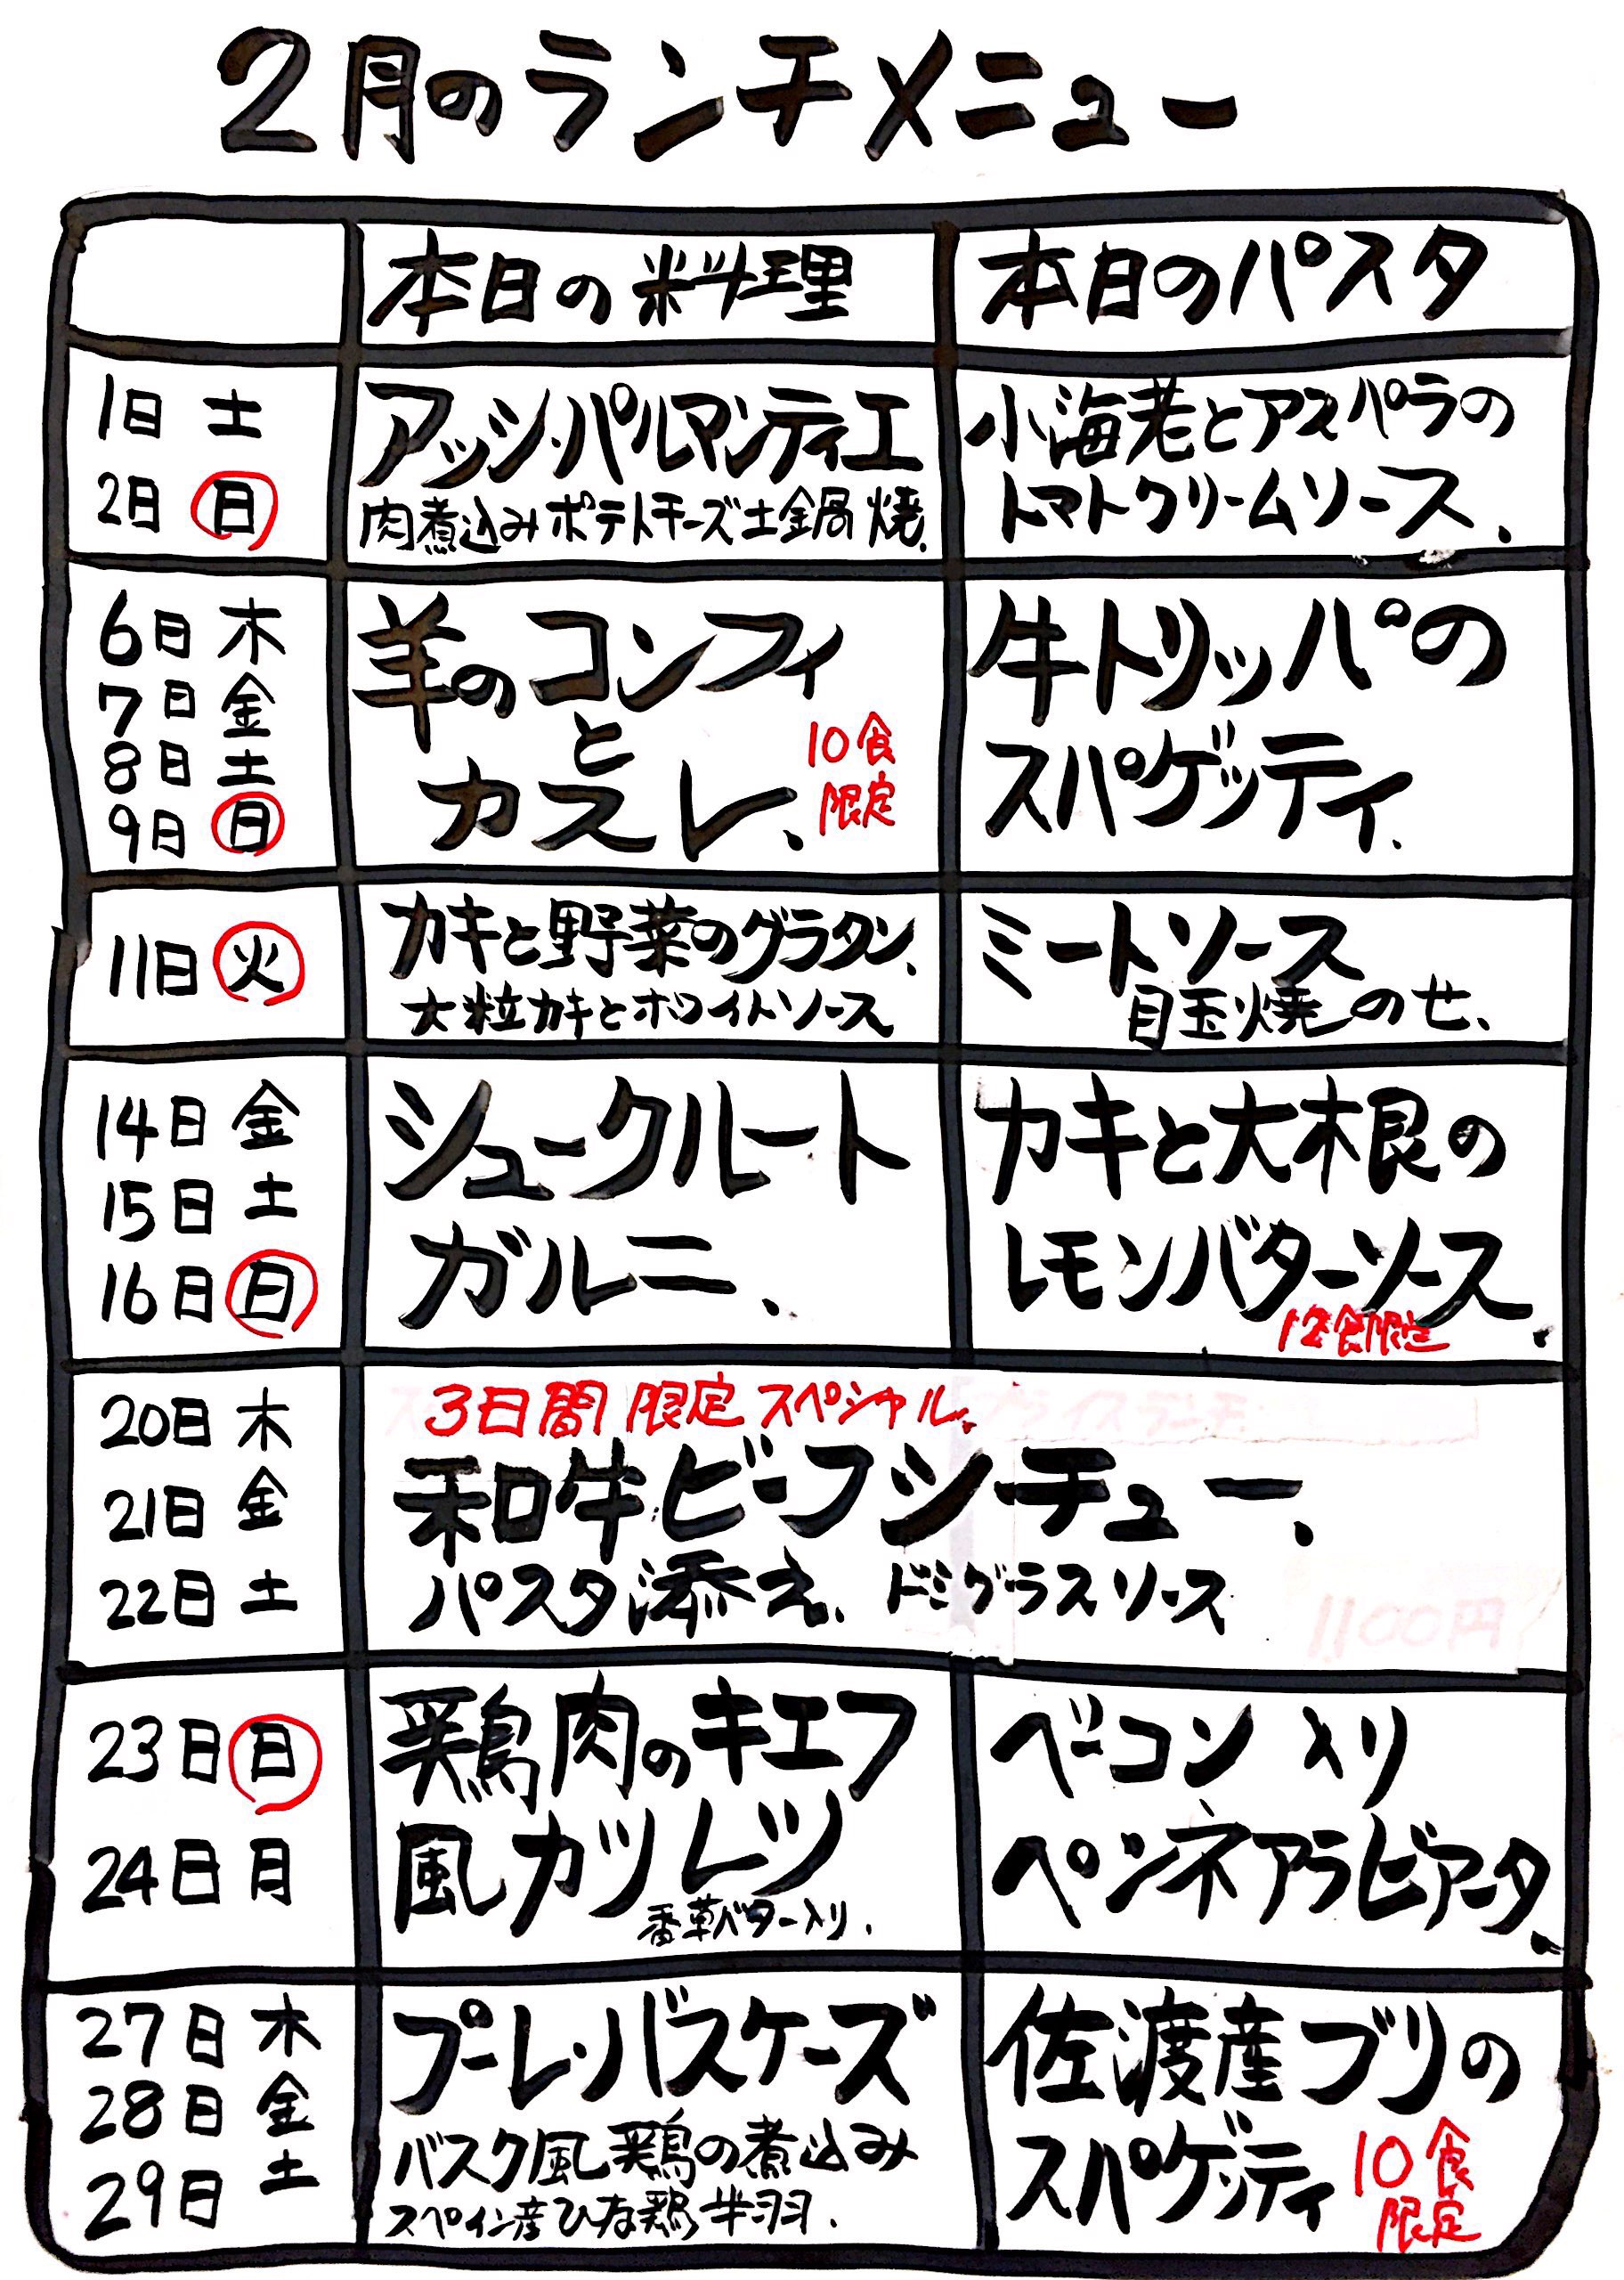 2月のランチメニュー
本日の料理
本日のパスタ
1日 土
2日 日
アッシ・パルマンティエ
肉煮込みポテトチーズ土鍋焼、
小海老とアスパラの
トマトクリームソース、
6日 木
7日 金
8日 土
9日 日
羊のコンフィ
と
カスレ、
10食
限定
牛トリッパの
スパゲッティ、
11日 火
カキと野菜のグラタン、
大粒カキとホワイトソース
ミートソース
目玉焼のせ、
14日 金
15日 土
16日 日
シュークルート
ガルニ、
カキと大根の
レモンバターソース、
12食限定
20日 木
21日 金
22日 土
3日間 限定 スペシャル、
和牛ビーフシーチュー、
パスタ添え、ドミグラスソース
1100円
23日 日
24日 月
鶏肉のキエフ
風カツレツ
香草バター入り、
ベーコン入り
ペンネアラビアータ、
27日 木
28日 金
29日 土
プーレ・バスケーズ
バスク風鶏の煮込み
スペイン産ひな鶏半羽、
佐渡産ブリの
スパゲッティ
10食
限定